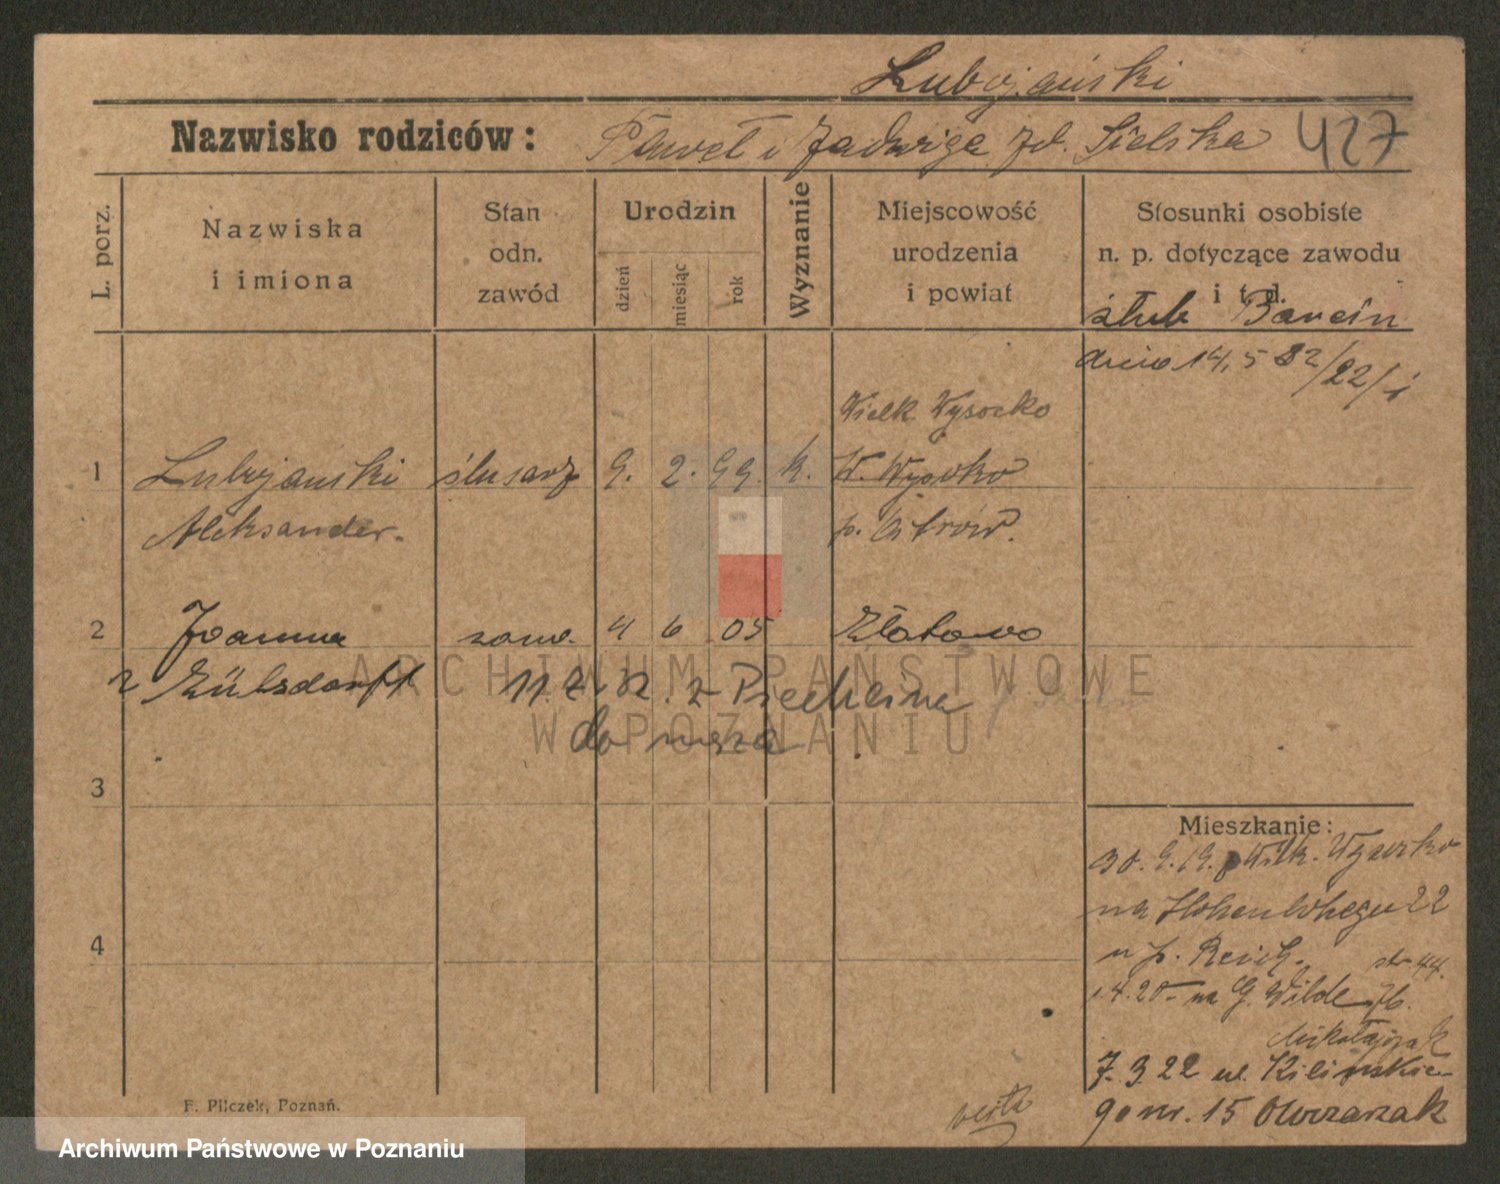 Lubojański
Nazwisko rodziców: Paweł i Jadwiga zd. Sielska 427
L. porz.
Nazwiska
i imiona
Stan
odn.
zawód
Urodzin
dzień
miesiąc
rok
Wyznanie
Miejscowość
urodzenia
i powiat
Stosunki osobiste
n. p. dotyczące zawodu
i t d.
ślub Barcin
dnia 14,5 32/22/i
Wielk Wysocko
1 Lubojański ślusarz 9. 2. 99. k. W. Wysocko
Aleksander. p. Ostrów.
2 Joanna zamę. 4 6 05 Złotowo
z Zülsdorff 11.7.32. z Piechcina
do męża
3
4
Mieszkanie:
30.9.19. Wielk. Wysocko
na Hohenlohego 22
u p.
1.4.20 na G. Wilde 76. str 44.
Mikołajczak
7.3.22 ul. Kilińskie-
go nr. 15 Owczarzak
verte
F. Pilczek, Poznań.
ARCHIWUM PAŃSTWOWE
W POZNANIU
Archiwum Państwowe w Poznaniu